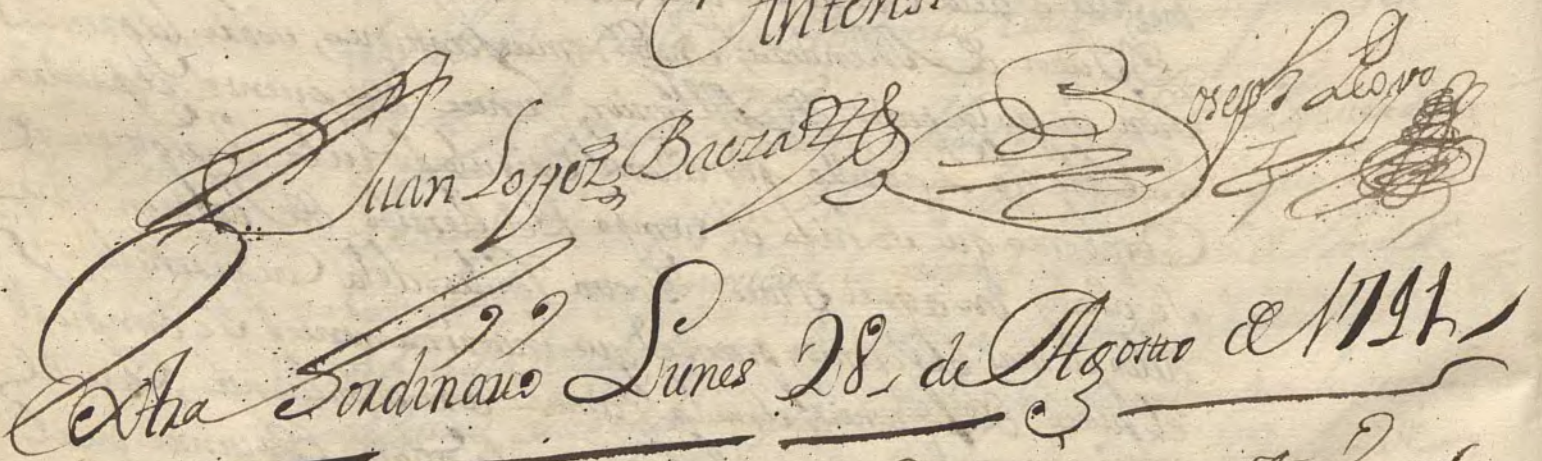 Juan Lopez Baeza Joseph
Extra ordinario Lunes 28 de Agosto de 1741